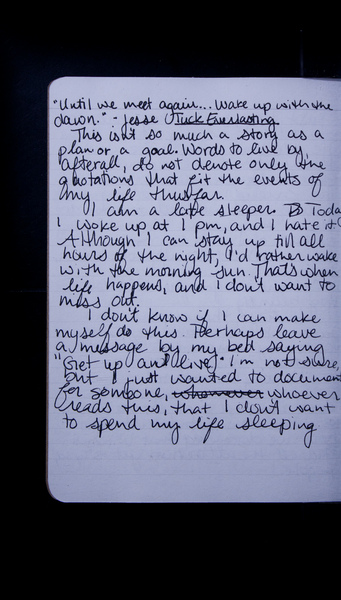 "Until we meet again... Wake up with the
dawn." - Jesse Tuck Everlasting
This isn't so much a story as a
plan or a goal. Words to live by
afterall, do not denote only the
quotations that fit the events of
my life thusfar.
I am a late sleeper. Toda
I woke up at 1 pm, and I hate it
Although I can stay up till all
hours of the night, I'd rather wake
with the morning sun. That's when
life happens, and I don't want to
miss out.
I don't know if I can make
myself do this. Perhaps leave
a message by my bed saying
"Get up and live." I'm not sure,
but I just wanted to document
for someone, whomever whoever
reads this, that I don't want
to spend my life sleeping